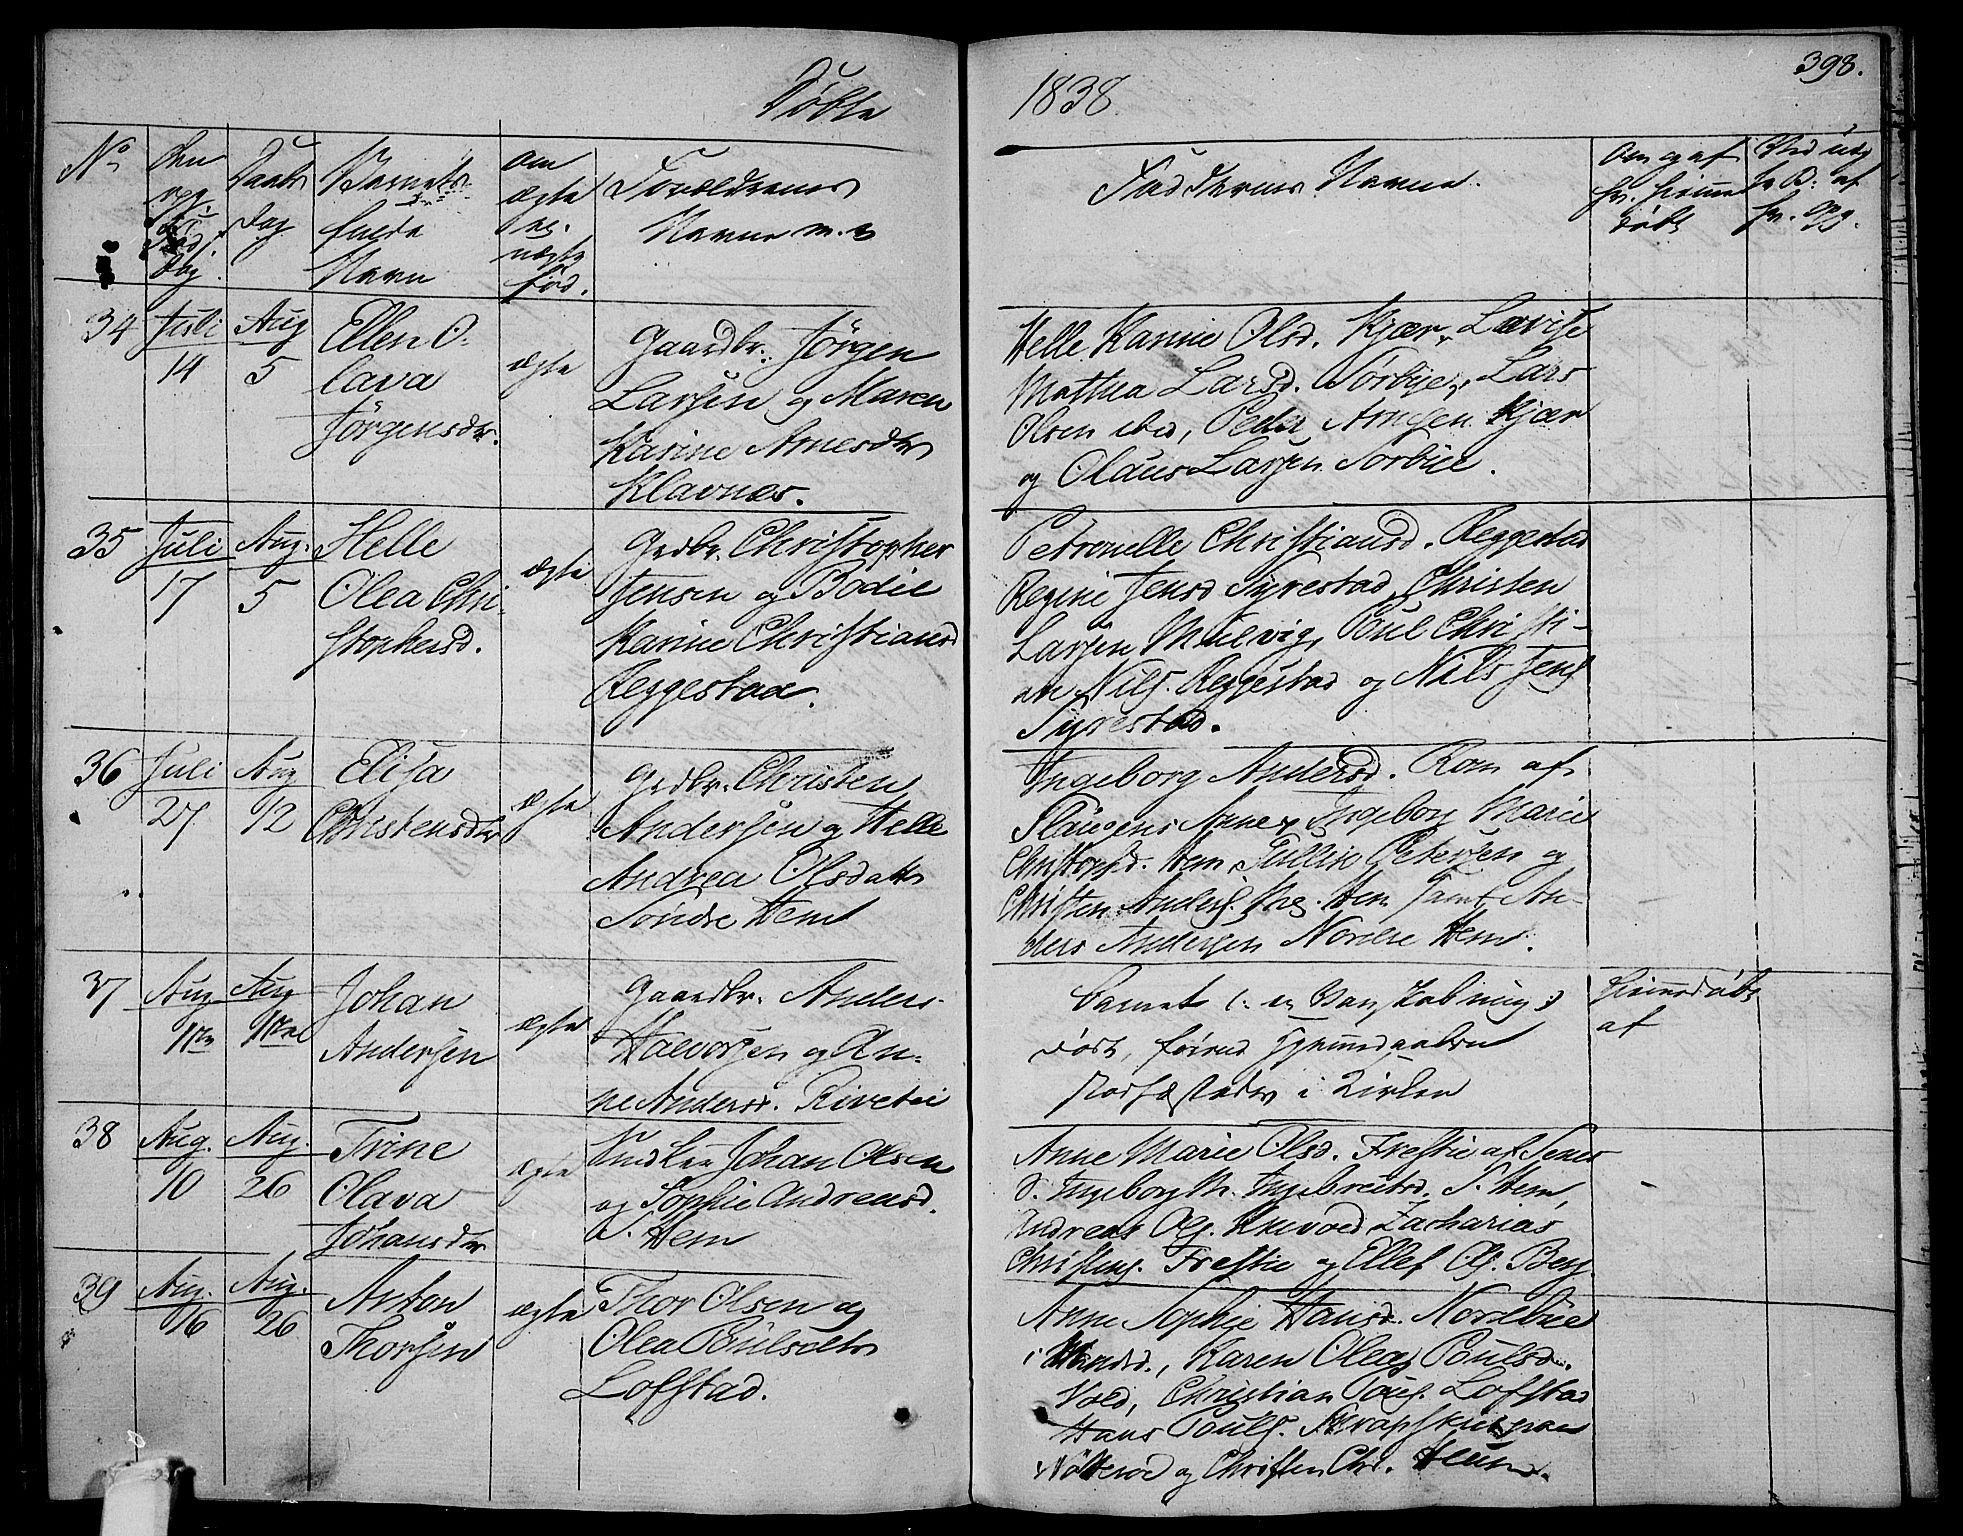 398.
Döbte
1838.
No
Daabs
Dag
Barnets
fulde
Navn
om
ægte
uægte
fød.
Forældrenes
Navne m. v.
Faddernes Navne.
Om og af
hv. hjemme
döbt
34
Juli
14
Aug
5
Ellen O-
lava
Jörgensdr.
ægte
Gaardbr. Jörgen
Larsen og Maren
Karine Arnesdr
Klavnes.
Helle Karine Olsd. Kjær, Lovise
Mathea Larsd. Sörbye, Lars
Olsen ibid, Peder Arnesen Kjær
og Olaus Larsen Sörbye.
35
Juli
17
Aug.
5
Helle
Olea Chri
stophersd.
ægte
Grdbr. Christopher
Jensen og Bodil
Karine Christiansd
Reggestad.
Petronelle Christiansd. Reggestad
Regine Jensd Syrestad, Christen
Larsen Mulvig, Poul Christi-
an Nils. Reggestad og Nils Jens
Syrestad.
36
Juli
27
Aug
12
Elisa
Christensdr
ægte
Grdbr. Christen
Andersen og Helle
Andrea Olsdatter
Söndre Hem
Ingeborg Andersd. Rom af
Slaugens Annex, Ingeborg Marie
Christophd. Hem, Gullik Petersen og
Christen Anders. Hem samt An-
ders Andersen Nordre Hem.
37
Aug
Aug
Johan
Andersen
ægte
Gaardbr. Anders
Halvorsen og An-
ne Andersd.
Barnet
döbt, förend Hjemmedaaben
stadfæstedes i Kirken
hjemmedöbt
af
38
Aug.
10
Aug.
26
Trine
Olava
Johansdr
ægte
Johan Olsen
og Sophie Andreasd.
S. Hem
Anne Marie Olsd. Frestie af
Ingeborg M. Ingebretsd. S. Hem,
Andreas Ols. Zacharias
Christens. Frestie og Ellef Ols. Berg.
39
Aug.
16
Aug.
26
Anton
Thorsen
ægte
Thor Olsen og
Olea Poulsdtr
Lofstad.
Anne Sophie Hansd. Nordbye
i Karen Olea Poulsd.
Vold, Christian Pouls. Lofstad
Hans Pouls.
og Christen Chr.